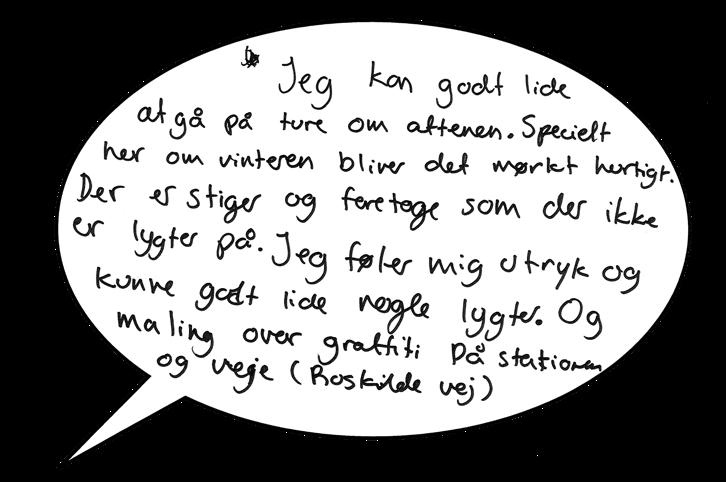 Jeg kan godt lide
at gå på ture om aftenen. Specielt
her om vinteren bliver det mørkt hurtigt.
Der er stiger og foretoge som der ikke
er lygter på. Jeg føler mig utryk og
kunne godt lide nogle lygter. Og
maling over graffiti på stationen
og veje (Roskilde vej)